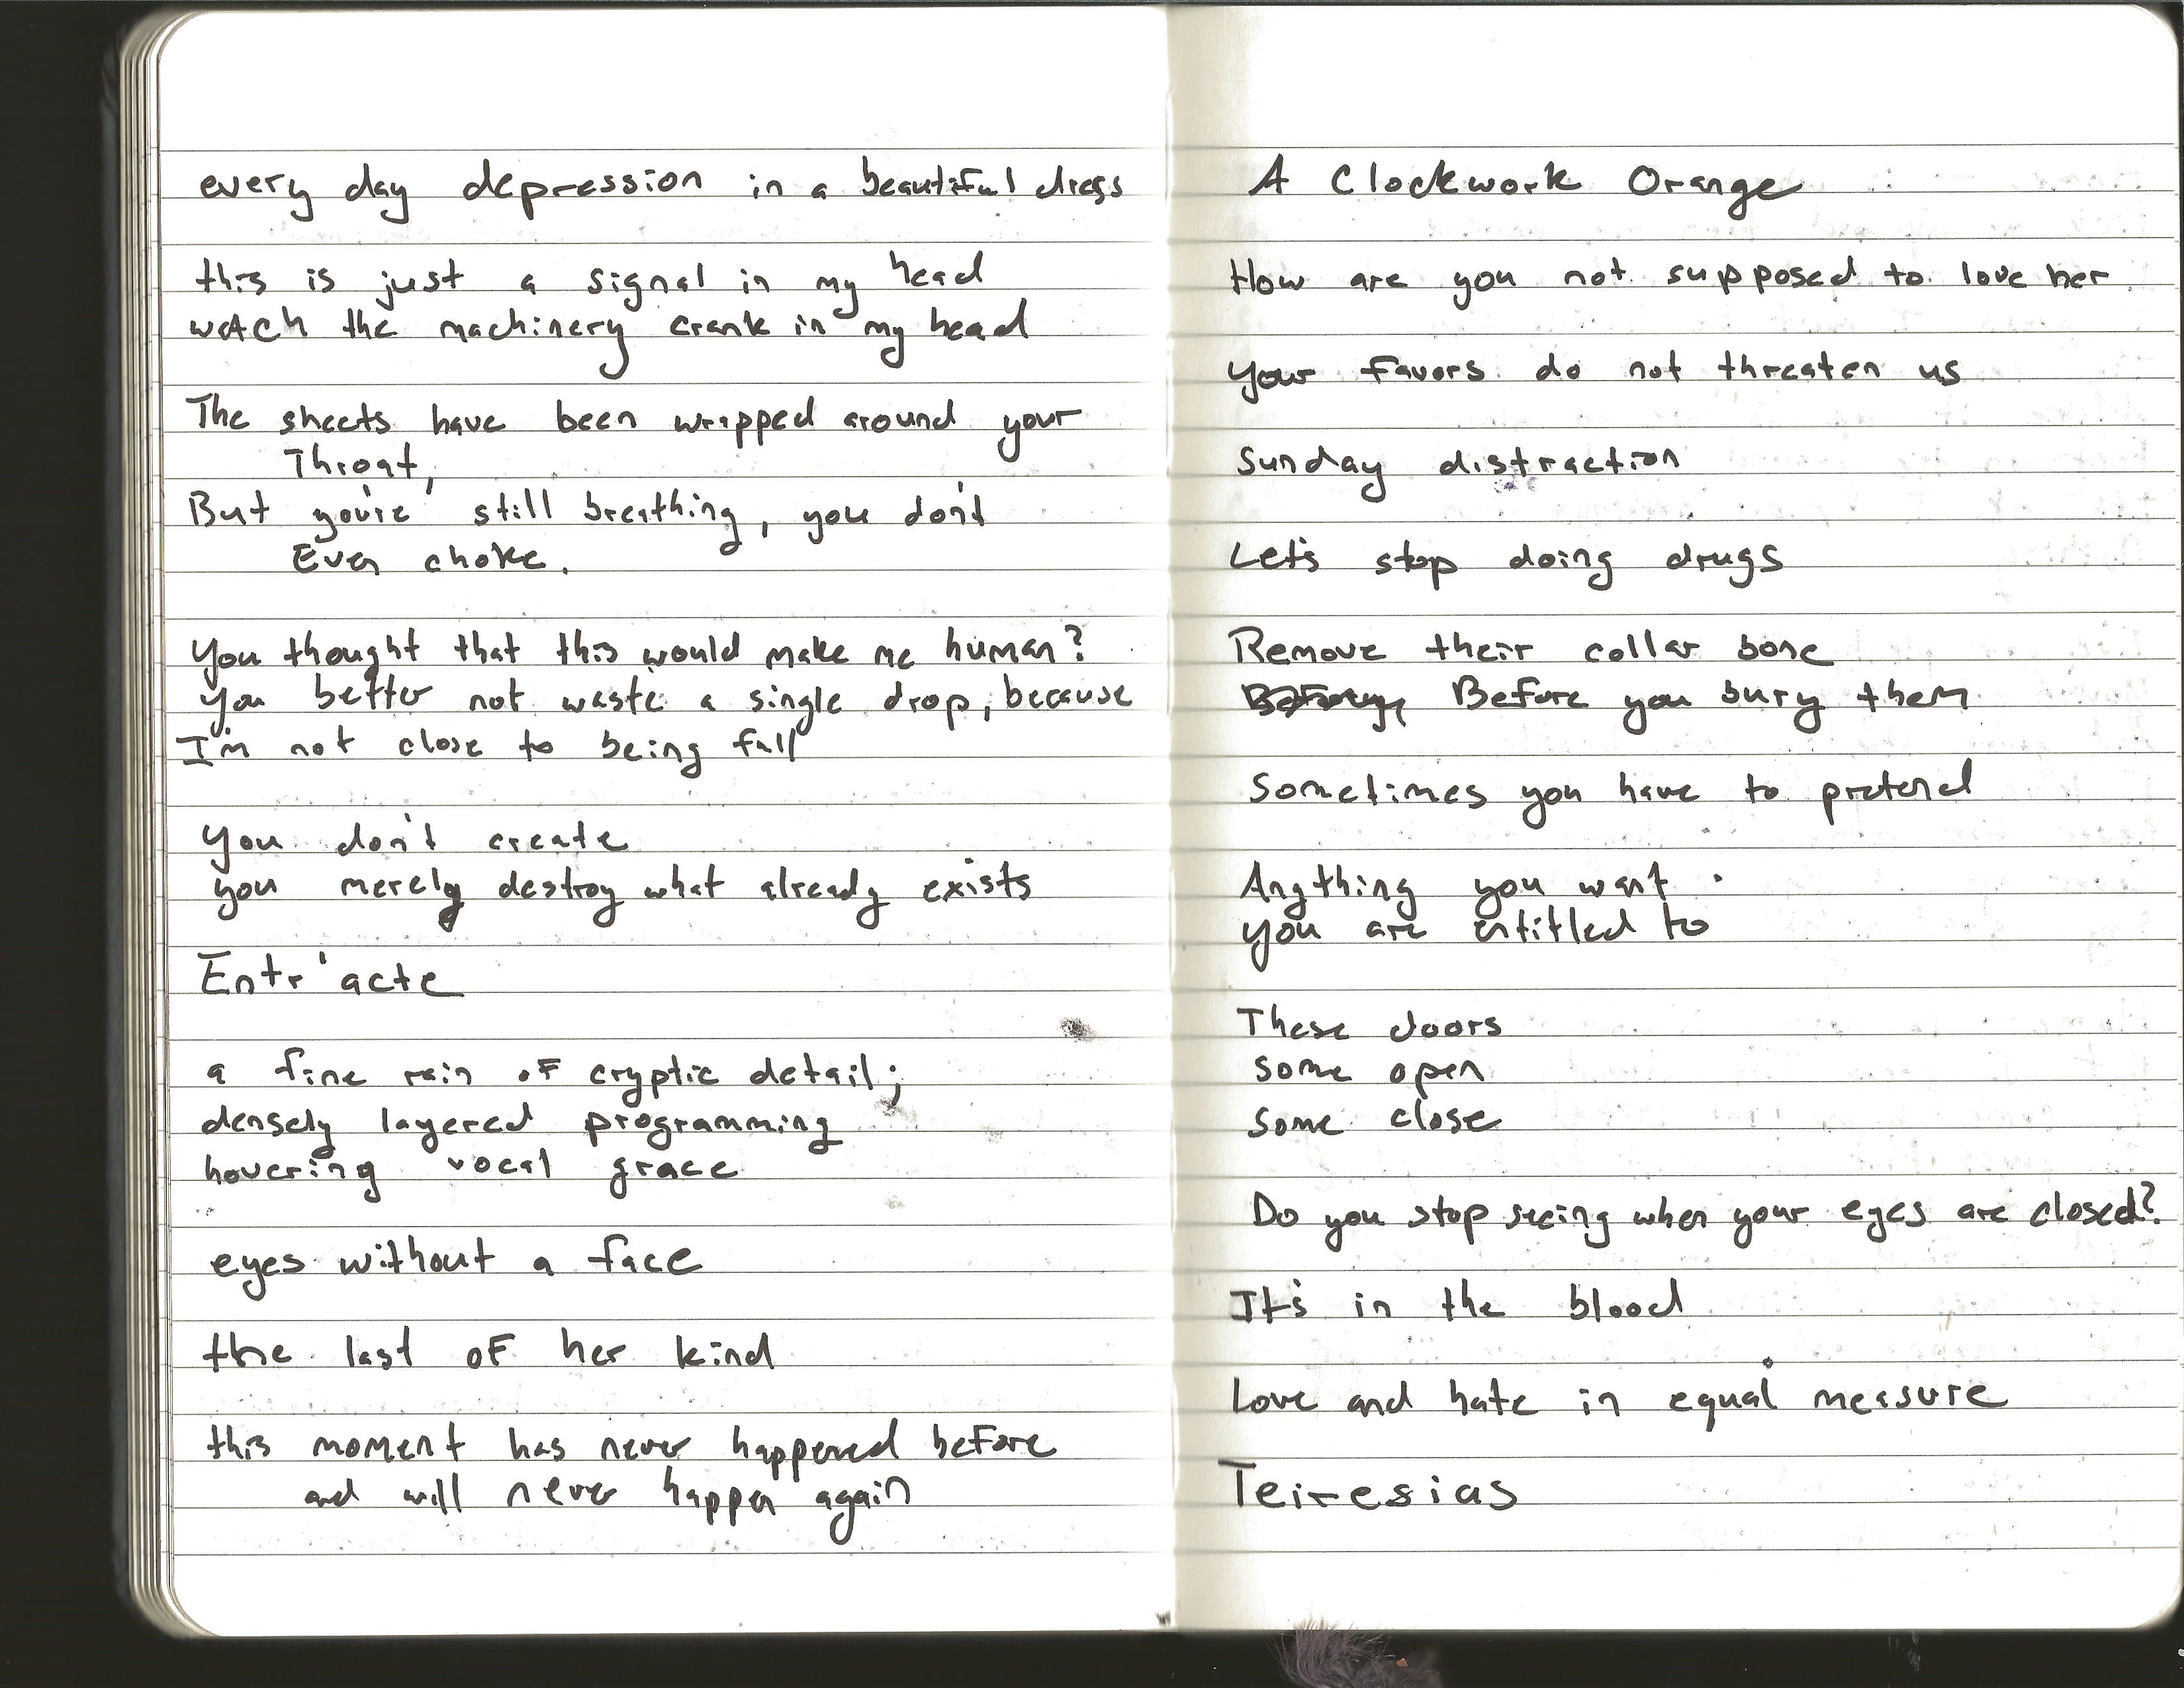 every day depression in a beautiful dress
this is just a signal in my head
watch the machinery crank in my head
The sheets have been wrapped around your
Throat,
But you're still breathing, you don't
Even choke.
You thought that this would make me human?
you better not waste a single drop, because
I'm not close to being full
you don't create
you merely destroy what already exists
Entr'acte
a fine rain of cryptic detail;
densely layered programming
hovering vocal grace
eyes without a face
the last of her kind
this moment has never happened before
and will never happen again
A Clockwork Orange
How are you not supposed to love her
Your favors do not threaten us
Sunday distraction
Let's stop doing drugs
Remove their collar bone
Before you bury them
Sometimes you have to pretend
Anything you want
you are entitled to
These doors
some open
some close
Do you stop seeing when your eyes are closed?
It's in the blood
Love and hate in equal measure
Teiresias